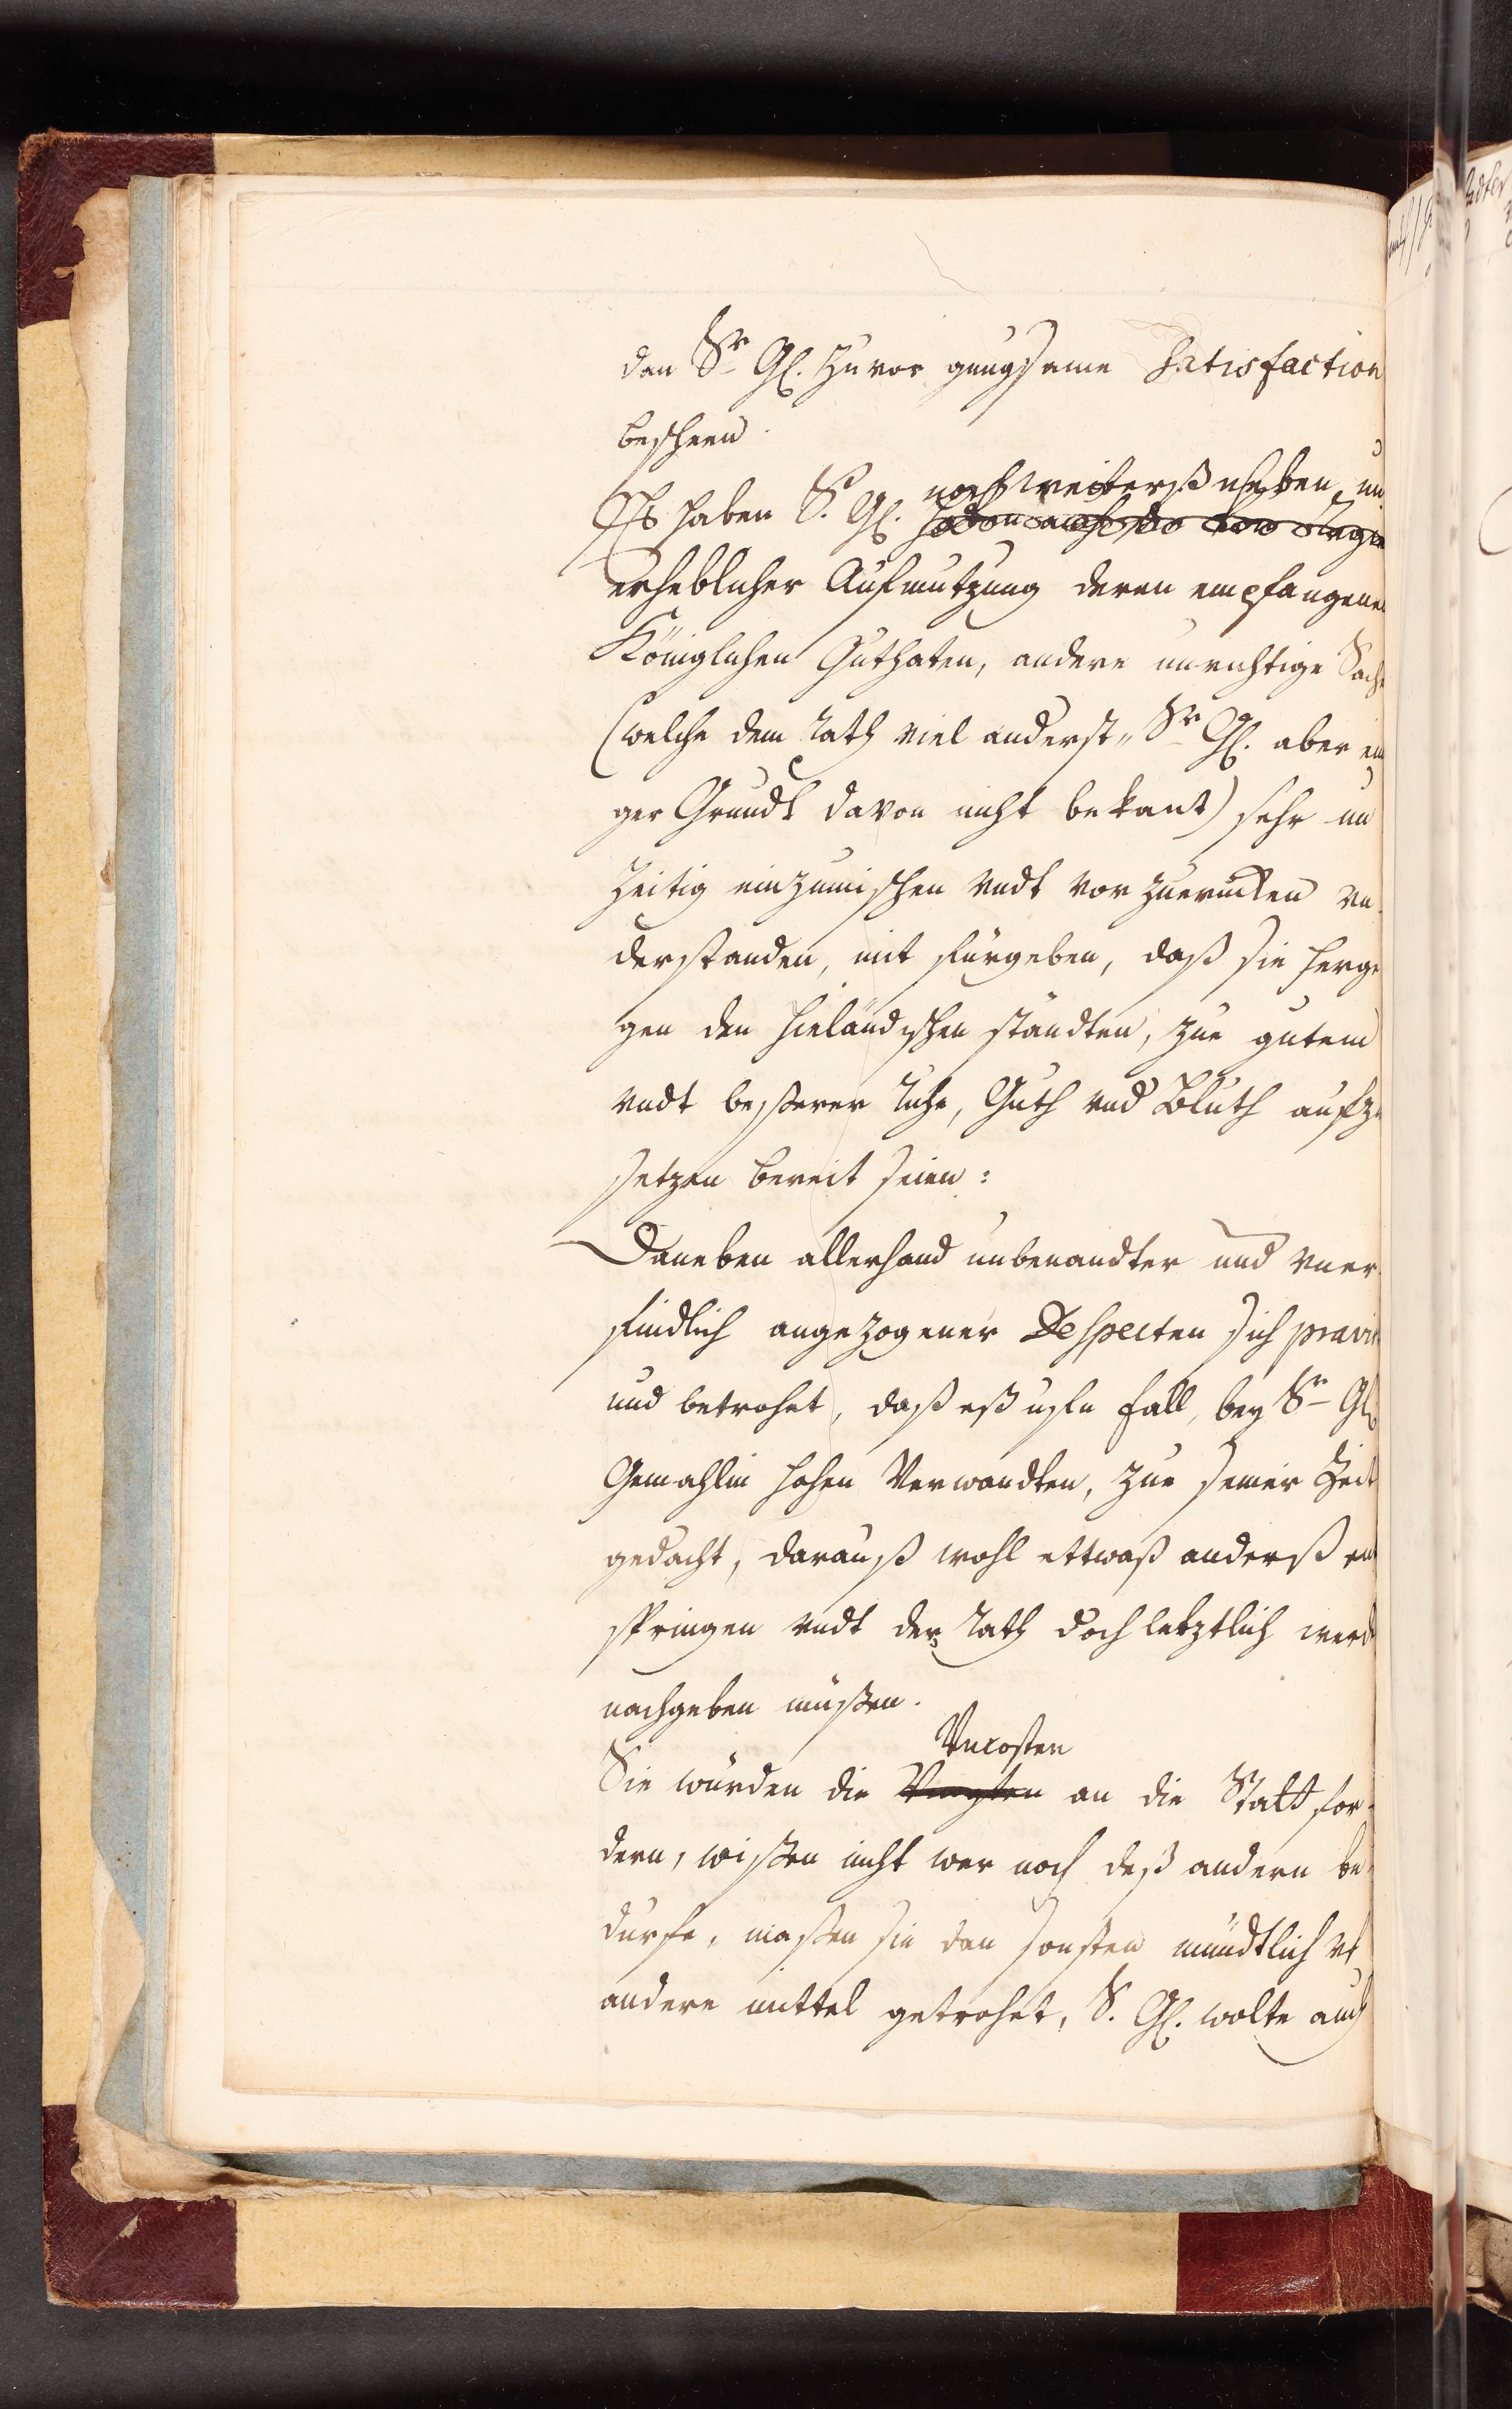 den Sr Gl. zuvor gnugsame Satisfaction
beschehen.
noch weiterß neben, un
Eß haben S. Gl.
erheblicher Aufmutzung deren empfangenen
Königlichen Guthaten, andere unrichtige Sach
(welche dem Rath viel anderst, Sr Gl. aber eini
ger Grundt davon nicht bekant) sehr un
zeitig einzumischen undt vorzurucken un
derstanden, mit fürgeben, daß sie herge
gen den Lieländischen ständten, zue gutem
undt besserer Ruhe, Guth und Bluth aufzu
setzen bereit seien:
Daneben allerhand unbenandter und uner
findlich angezogener Despecten sich
und betrohet, daß eß uf den fall, bey Sr Gl.
Gemahlin hohen Verwandten, zue seiner Zeit
gedacht, darauß wohl ettwaß anderß ent
springen undt der Rath doch letztlich werde
nachgeben müßen.
Uncosten
Sie würden die an die Statt for-
dern, wißen nicht wer noch deß andern be
durfe, maßen sie den sonsten mündtlich uf
andere mittel getrohet, S. Gl. wolte auch